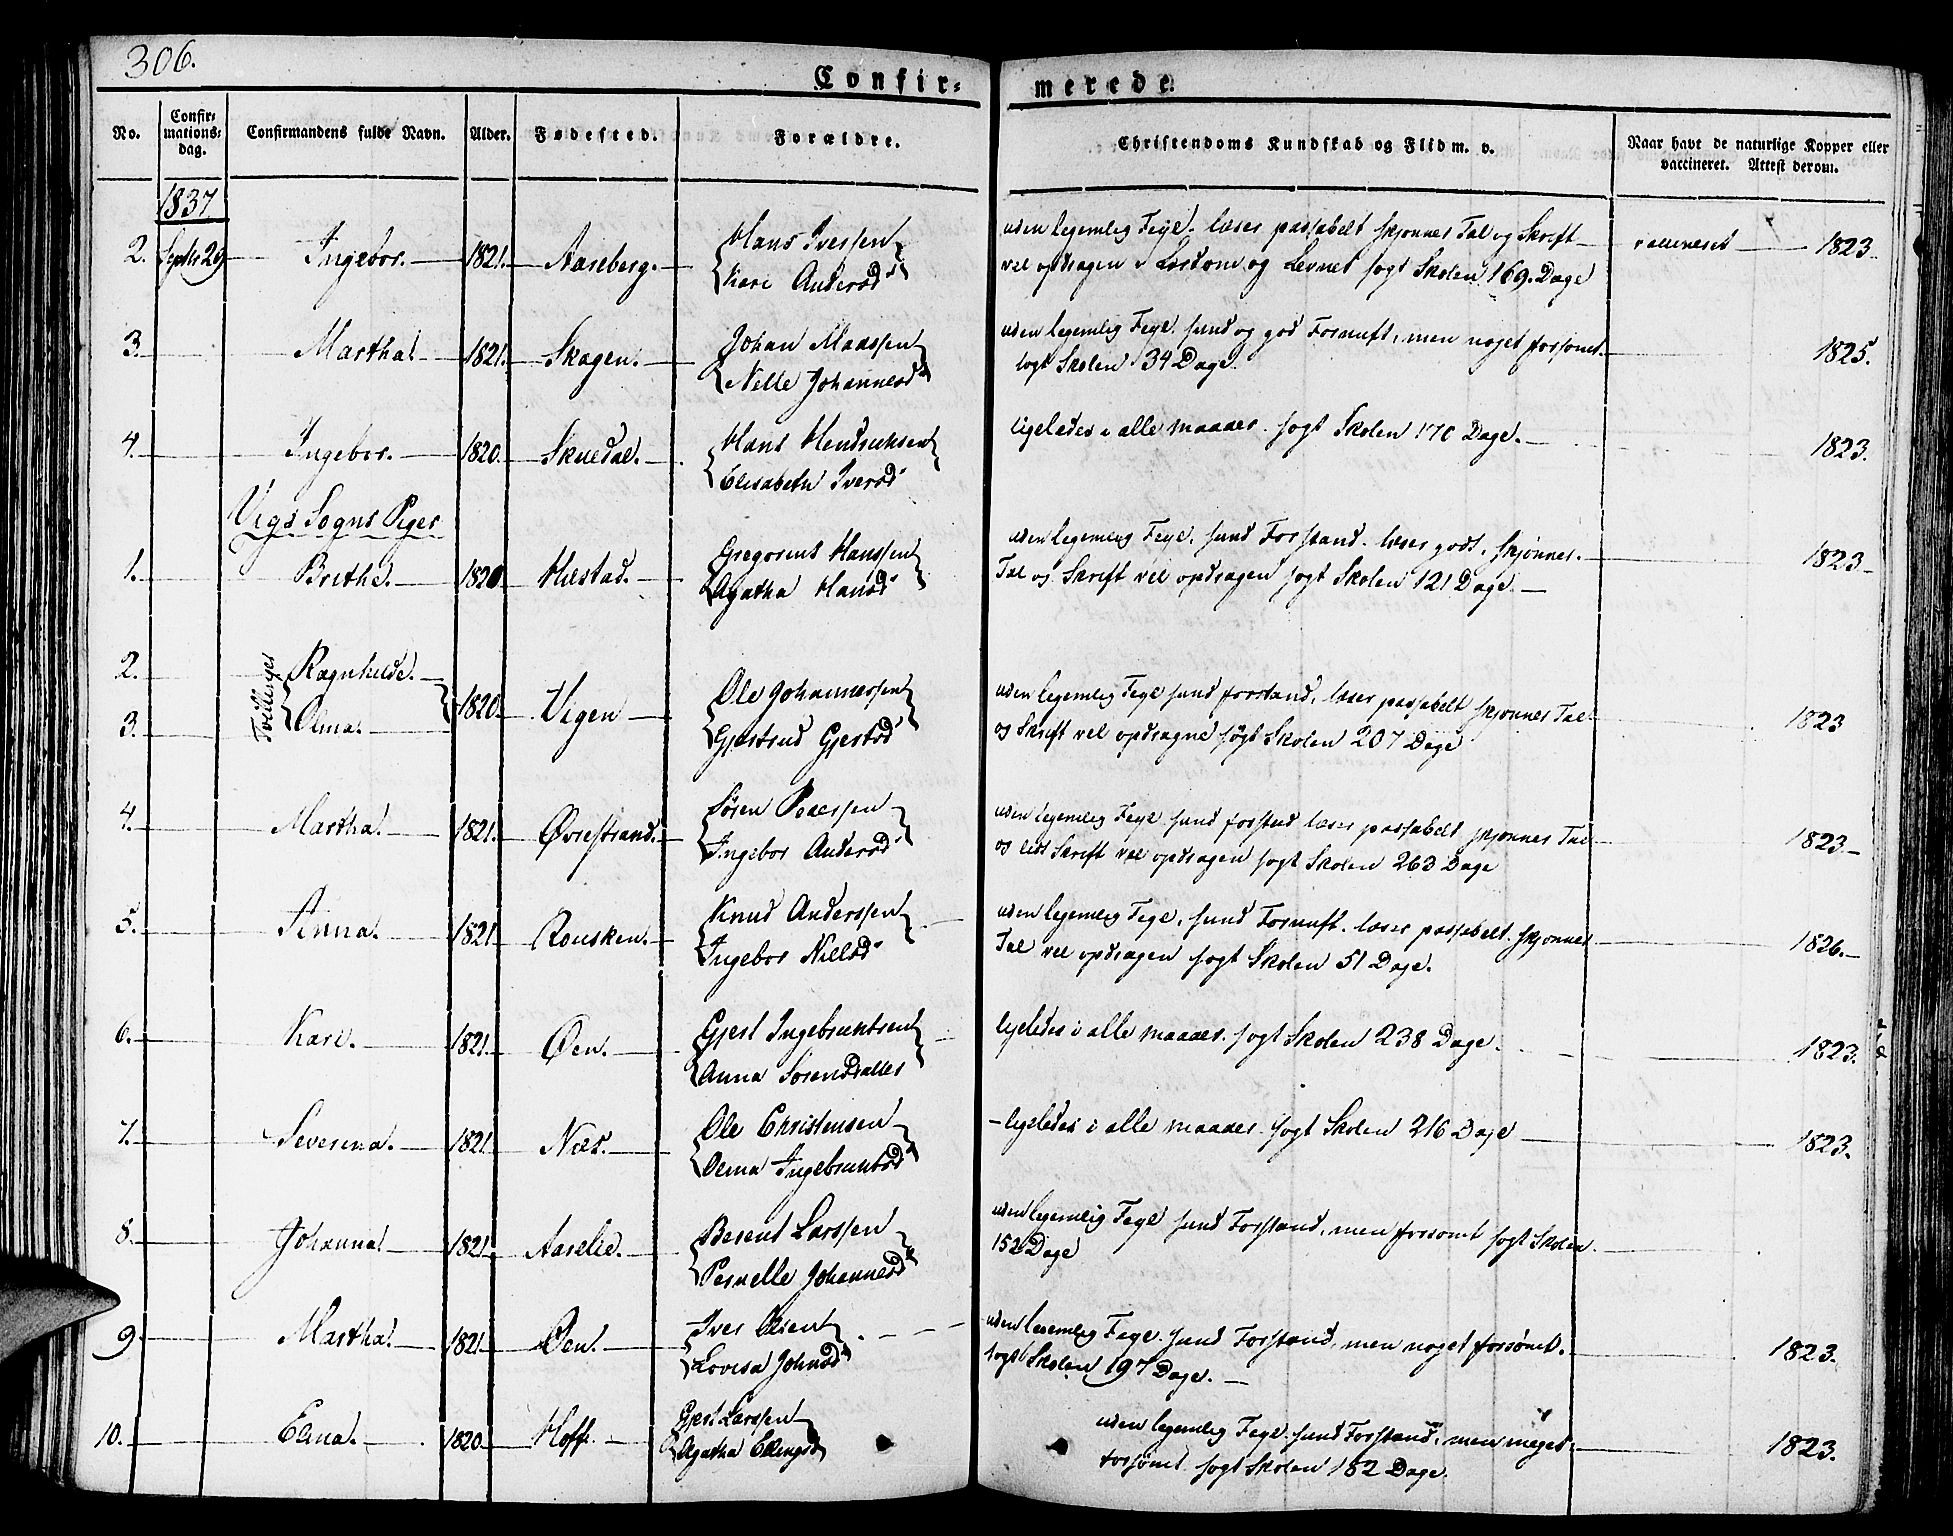 306.
Confir= merede.
No. Confir= mations= dag. Confirmandens fulde Navn. Alder. Fødested. Forældre. Christendoms Kundskab og Flid m. v. Naar havt de naturlige Kopper eller vaccineret. Attest derom.
1837
2. Septbr 29 Ingebor. 1821. Aaseberg. Hans Iversen uden legemlig Feyl. læser passabelt skjønner Tal og Skrift vaccineret 1823
Kari Andersd vel opdragen i Lærdom og Levnet søgt Skolen 169. Dage
3. Martha. 1821. Skagen. Johan Monssen uden legemlig Feyl. sund og god Fornuft, men noget forsømt. 1825.
Nille Johannesd søgt Skolen 34 Dage.
4. Ingebor. 1820. Skuedal. Hans Hendricksen ligeledes i alle maader. søgt Skolen 170 Dage. 1823.
Elisabeth Iversd
Vigs Sogns Piger
1. Brithe. 1820 Hæstad. Gregorius Hanssen uden legemlig Feyl. sund Forstand. læser godt. skjønner. 1823
Agatha Hansd Tal og Skrift vel opdragen søgt Skolen 121 Dage.
2. Tvillinger Ragnhilde. 1820. Vigen Ole Johannessen uden legemlig Feyl sund forstand, læser passabelt skjønner Tal 1823
3. Olina. Gjertrud Gjertsd og Skrift vel opdragne søgt Skolen 207 Dage
4. Martha. 1821. Øvrestrand. Søren Pedersen uden legemlig Feyl. sund forstand læser passabelt skjønner Tal 1823
Ingebor Andersd og lidt Skrift vel opdragen søgt Skolen 263 Dage
5. Anna. 1821. Knud Anderssen uden legemlig Feyl, sund Fornuft. læser passabelt. skjønner 1826.
Ingebor Nielsd Tal vel opdragen søgt Skolen 51 Dage.
6. Kari. 1821. Øen. Gjert Ingebrictsen ligeledes i alle maader. søgt Skolen 238 Dage. 1823.
Anna Sørensdatter
7. Severina. 1821. Næs. Ole Christensen ligeledes i alle maader. søgt Skolen 216 Dage 1823.
Olina Ingebrictsd
8. Johanna. 1821. Aaselie. Berent Larssen uden legemlig Feyl sund Forstand, men forsømt søgt Skolen
Pernelle Johannesd 152 Dage
9. Martha. 1821. Øen. Iver Olsen uden legemlig Feyl. sund Forstand, men noget forsømt. 1823.
Lovisa Johnsd søgt Skolen 197 Dage.
10. Elina. 1820. Hoff. Gjert Larssen uden legemlig Feyl. sund Forstand, men meget 1823.
Agatha Ellingsd forsømt søgt Skolen 182 Dage.